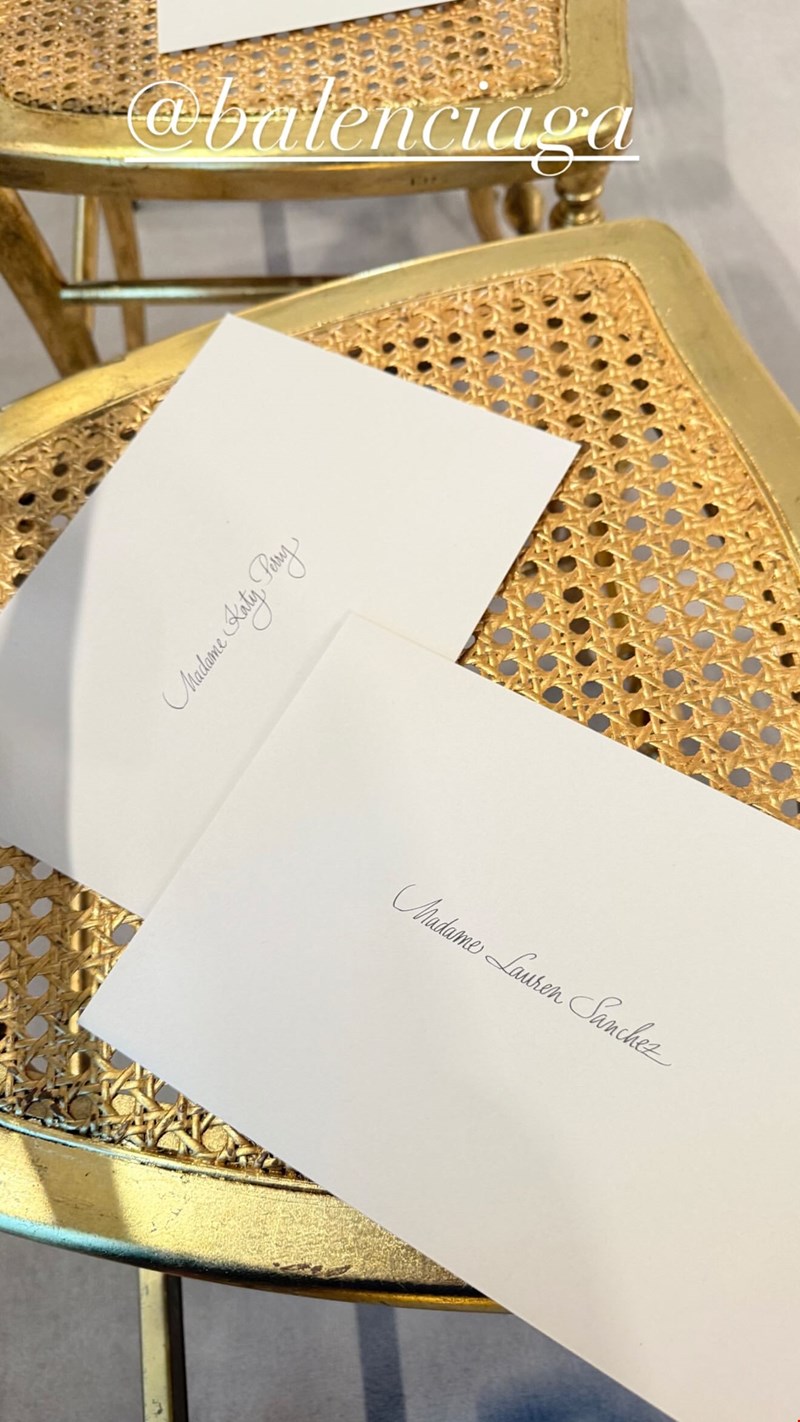 @balenciaga
Madame Katy Perry
Madame Lauren Sanchez